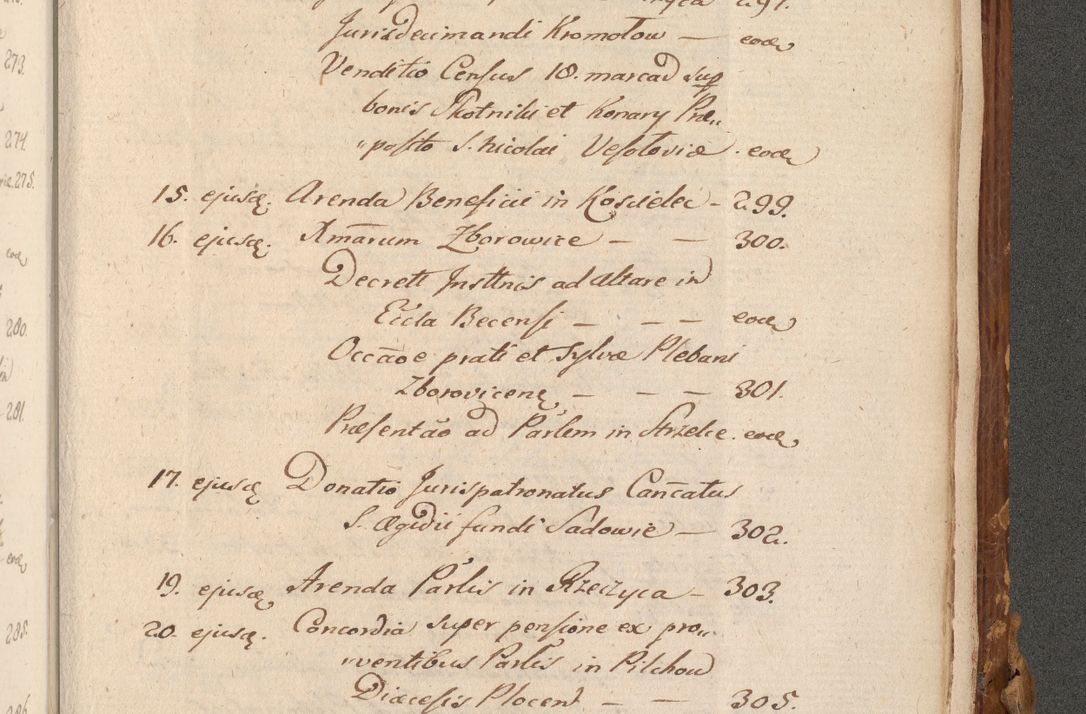 297.
Jurisdecimandi Kromolow — eodē
Venditio Census 18. marcar sup
bonis Skotniki et Konary Præ„
„posito S. Nicolai Vesoloviæ. eodē
15. ejusđ. Arenda Beneficii in Koscielec – 299.
16. ejusđ. Amārum Zborowice — — 300.
Decreti Insttnis ad altare in
Eccla Becensi – – — eodē
Occāoe prati et sylvæ Plebani
Zborovicenę, – — — 301.
Præsentāo ad Parlem in Strzelce. eodē
17. ejusđ Donatio Jurispatronatus Cancatus
S. Ægidii fundi Sadowie — 302.
19. ejusđ Arenda Parlis in Rzeczyca – 303.
20. ejusđ. Concordia super pensione ex pro„
„ventibus Parlis in Pilchow
Diæcesis Plocen — — 305.
273.
274.
275.
eodē
280.
281.
eodē
285.
286.